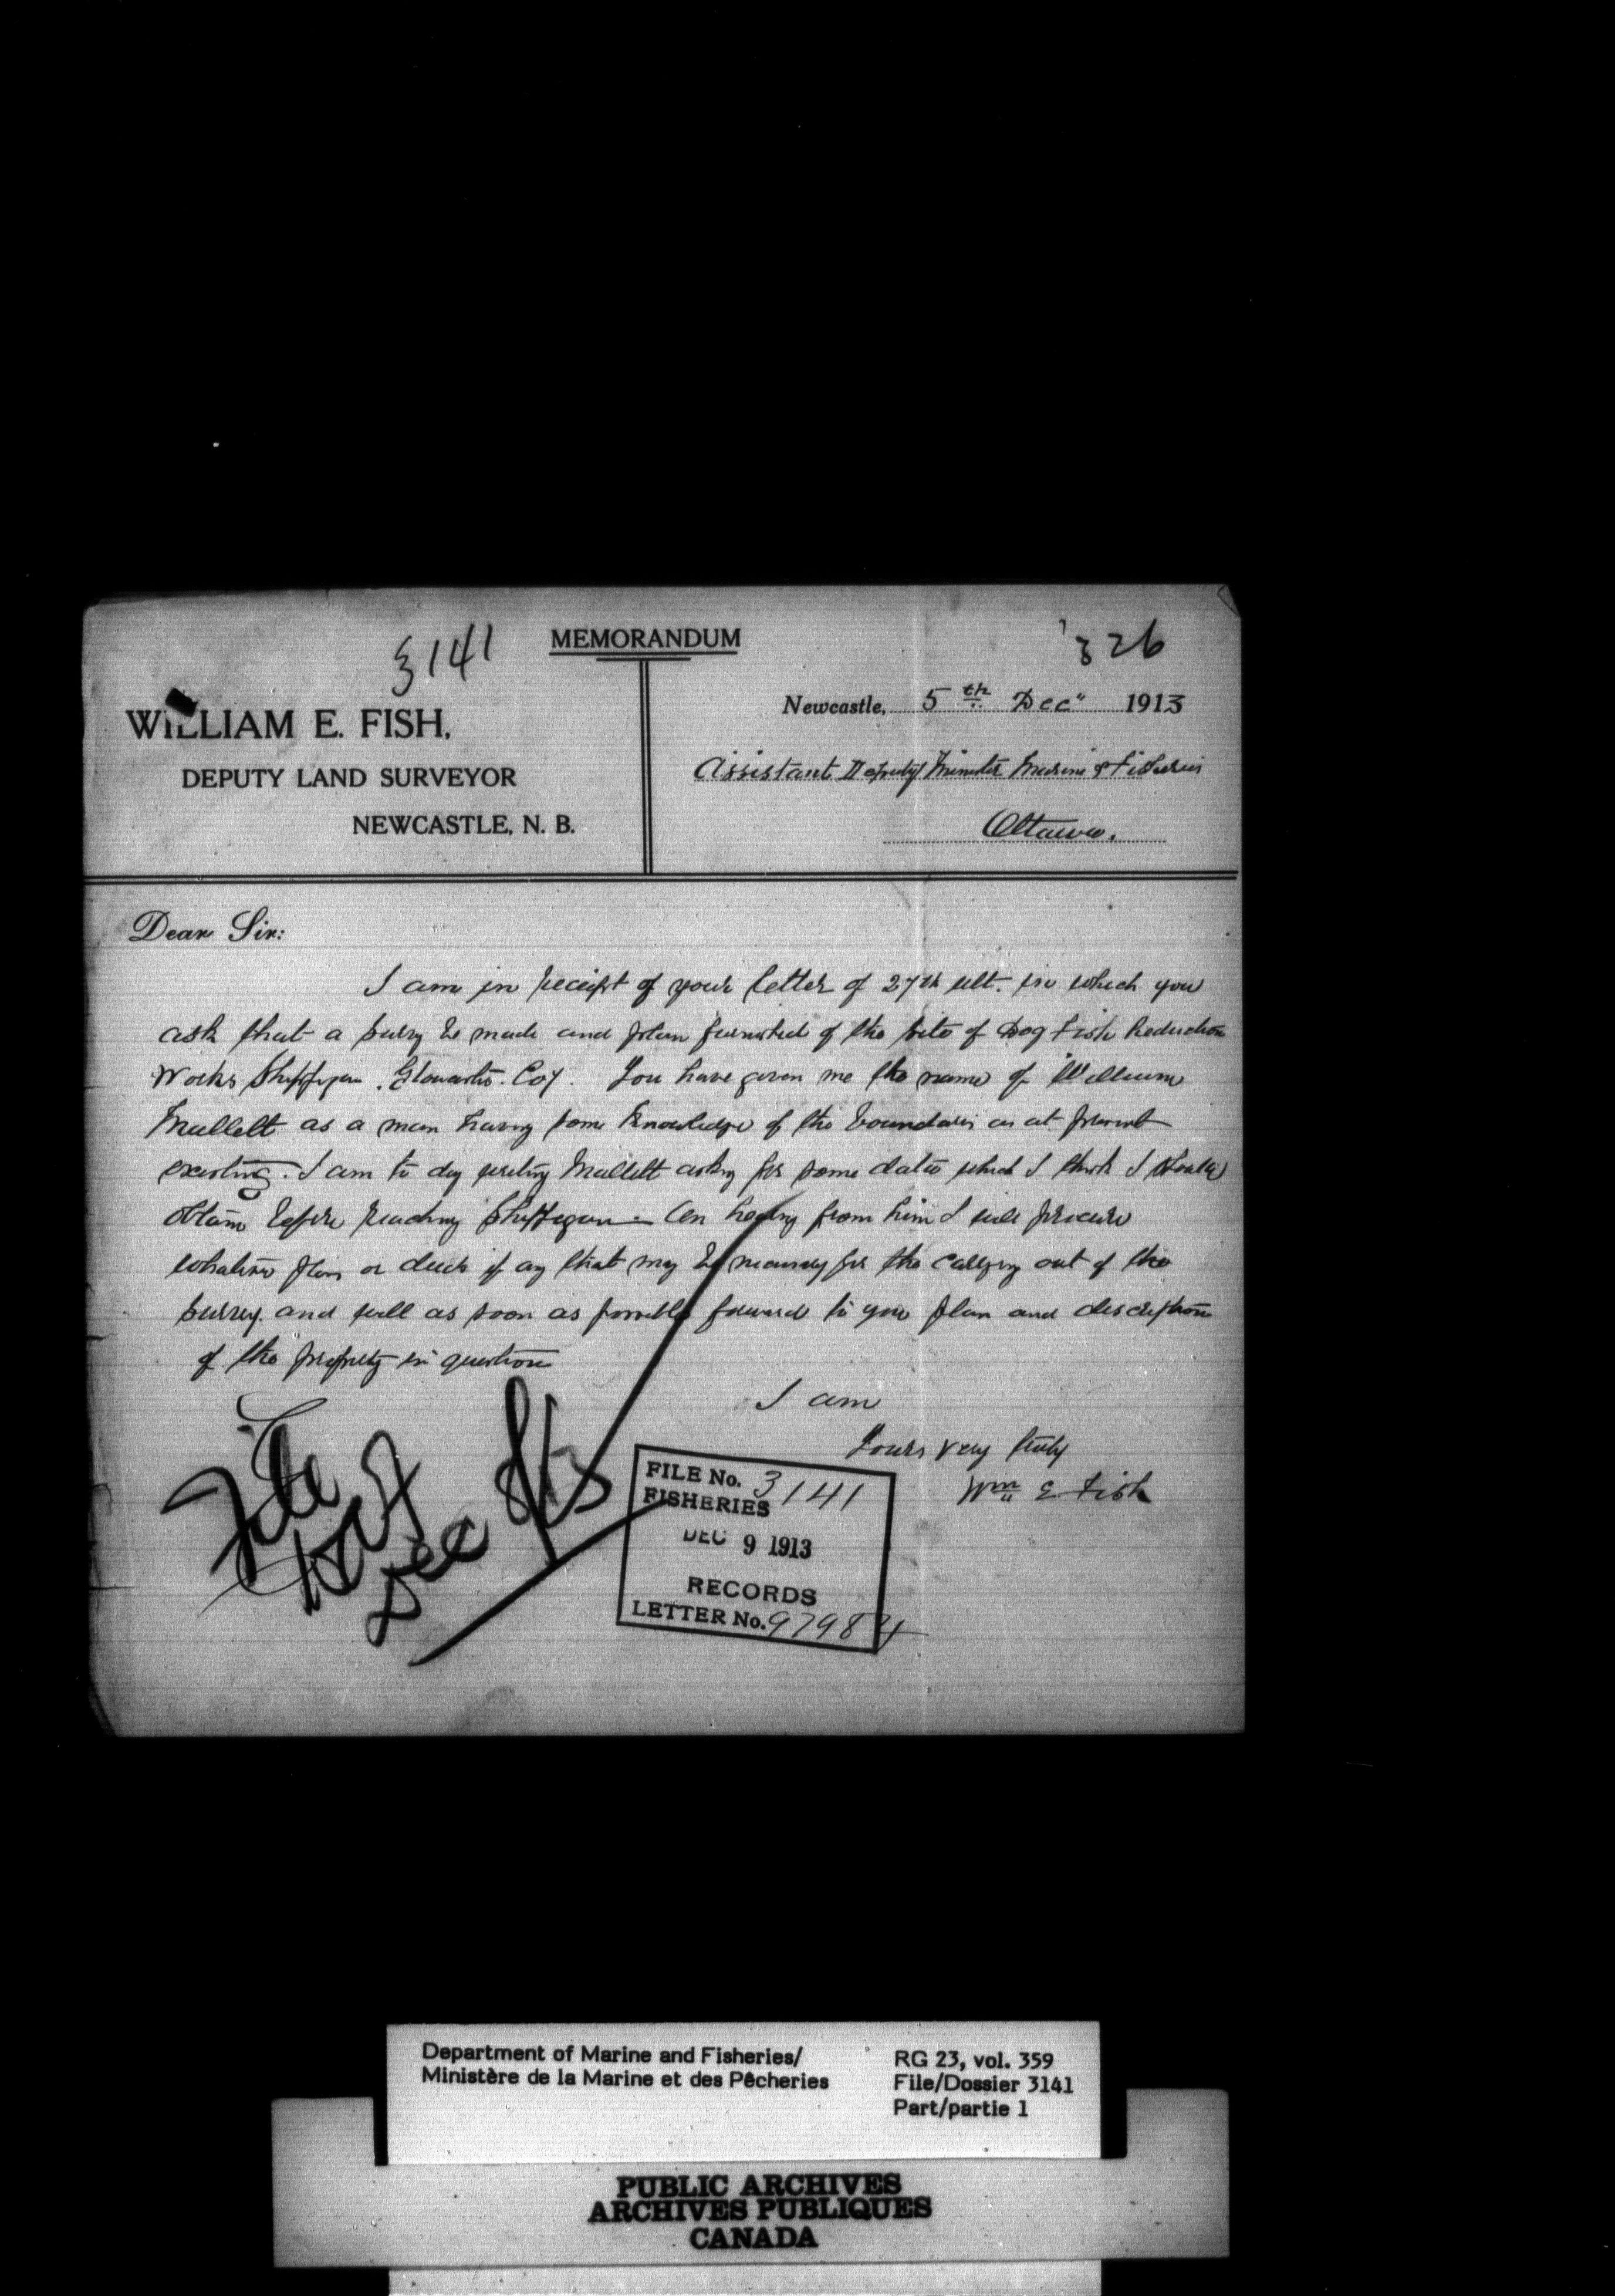 3141
MEMORANDUM
326
WILLIAM E. FISH,
DEPUTY LAND SURVEYOR
NEWCASTLE, N. B.
Newcastle, 5th Dec" 1913
Assistant Deputy Minister Marine & Fisheries
Ottawa.
Dear Sir:
I am in receipt of your letter of 27th ult. in which you
ask that a survey be made and plan furnished of the site of Dog Fish Reduction
Works Shippegan. Gloucester. Coy. You have given me the name of William
Mallett as a man having some knowledge of the boundaries as at present
existing. I am to day writing Mallett asking for some data which I think I should
obtain before reaching Shippegan. On hearing from him I will procure
whatever plans or deeds if any that may be necessary for the carrying out of the
survey. and will as soon as possible forward to you plan and description
of the property in question
I am
Yours very truly
Wm E Fish
File
Dec
FILE No. 3141
FISHERIES
DEC 9 1913
RECORDS
LETTER No. 97984
Department of Marine and Fisheries/
Ministère de la Marine et des Pêcheries
RG 23, vol. 359
File/Dossier 3141
Part/partie 1
PUBLIC ARCHIVES
ARCHIVES PUBLIQUES
CANADA